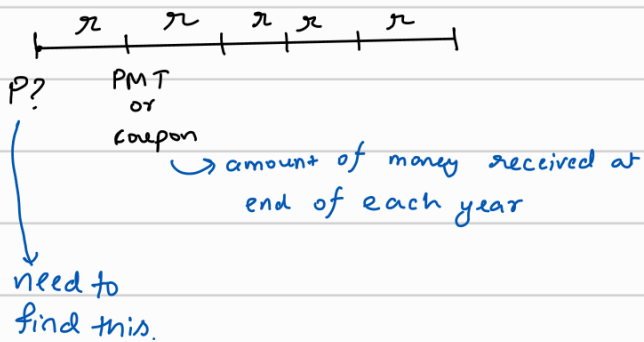 r r r r r
P?
PMT
or
coupon
amount of money received at
end of each year
need to
find this.